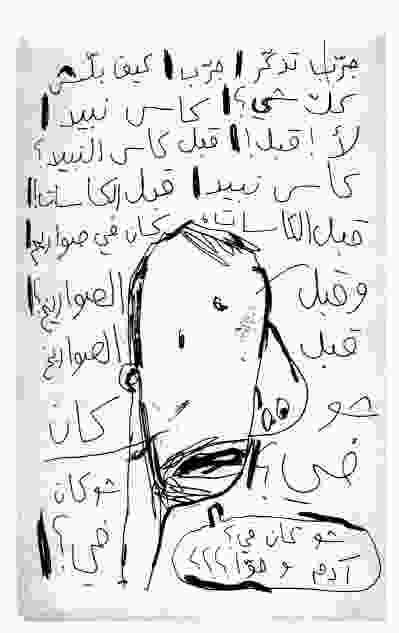 جرّب تذكّر! جرّب! كيف بلّش
كلّ شي؟! كاس نبيد!
لأ! قبل!! قبل كاس النبيد؟
كاس نبيد! قبل الكاسات!!
قبل الكاسات، كان في صواريخ!
وقبل الصواريخ؟!
قبل الصواريخ
شو كان
في؟
شو كان
في؟!
شو كان في؟
آدم و حوّا؟؟؟